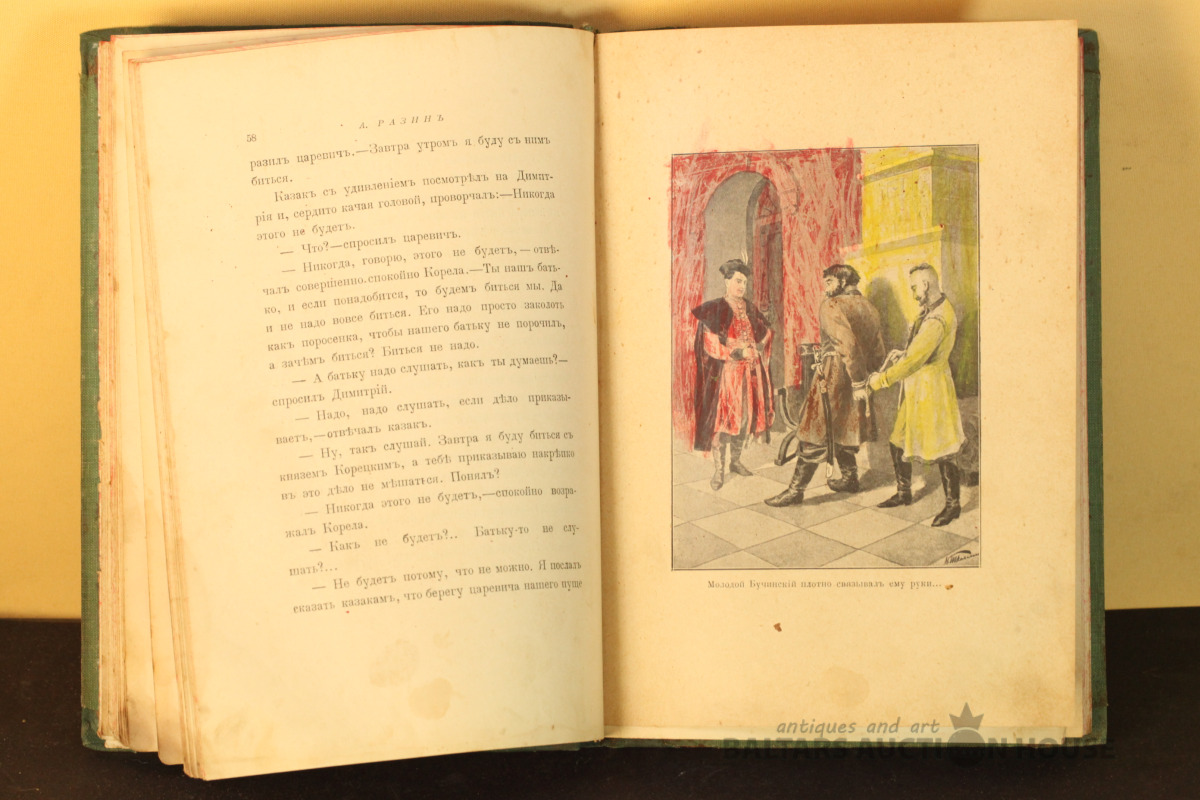 58
А. РАЗИНЪ
разилъ царевичъ.—Завтра утромъ я буду съ нимъ
биться.
Казакъ съ удивленіемъ посмотрѣлъ на Димит-
рія и, сердито качая головой, проворчалъ:—Никогда
этого не будетъ.
— Что?—спросилъ царевичъ.
— Никогда, говорю, этого не будетъ,—отвѣ-
чалъ совершенно спокойно Корела.—Ты нашъ бать-
ко, и если понадобится, то будемъ биться мы. Да
и не надо вовсе биться. Его надо просто заколоть
какъ поросенка, чтобы нашего батьку не порочилъ,
а зачѣмъ биться? Биться не надо.
— А батьку надо слушать, какъ ты думаешь?—
спросилъ Димитрій.
— Надо, надо слушать, если дѣло приказы-
ваетъ,—отвѣчалъ казакъ.
— Ну, такъ слушай. Завтра я буду биться съ
княземъ Корецкимъ, а тебѣ приказываю накрѣпко
въ это дѣло не мѣшаться. Понялъ?
— Никогда этого не будетъ,—спокойно возра-
жалъ Корела.
— Какъ не будетъ?.. Батьку-то не слу-
шать?...
— Не будетъ потому, что не можно. Я послалъ
сказать казакамъ, что берегу царевича нашего пуще
Молодой Бучинскій плотно связывалъ ему руки...
antiques and art
BALTARS AUCTION HOUSE